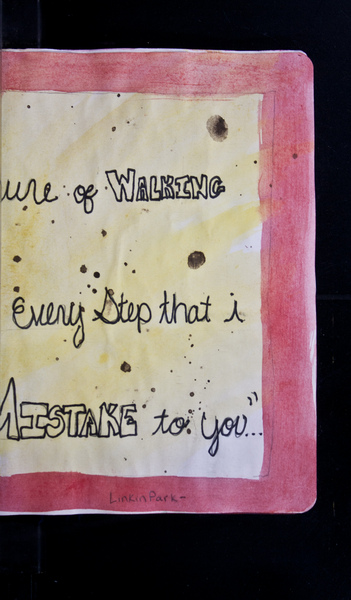 ure of WALKING
Every Step that i
MISTAKE to you..."
LinkinPark-